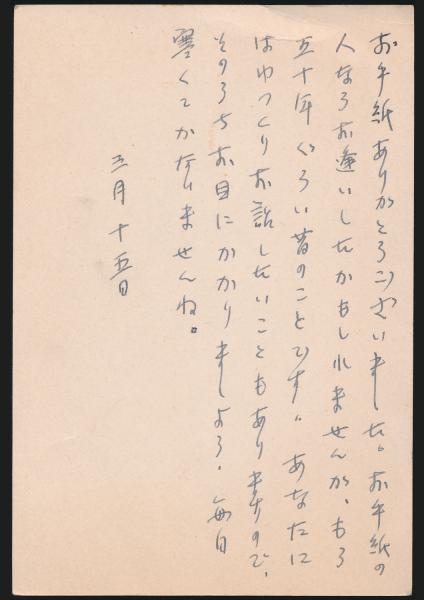 お手紙ありがとうございました。お手紙の
人ならお逢いしたかもしれませんが、もう
五十年ぐらい昔のことです。あなたに
はゆっくりお話したいこともありますので、
そのうちお目にかかりましょう。毎日
寒くてかないませんね。
三月十五日